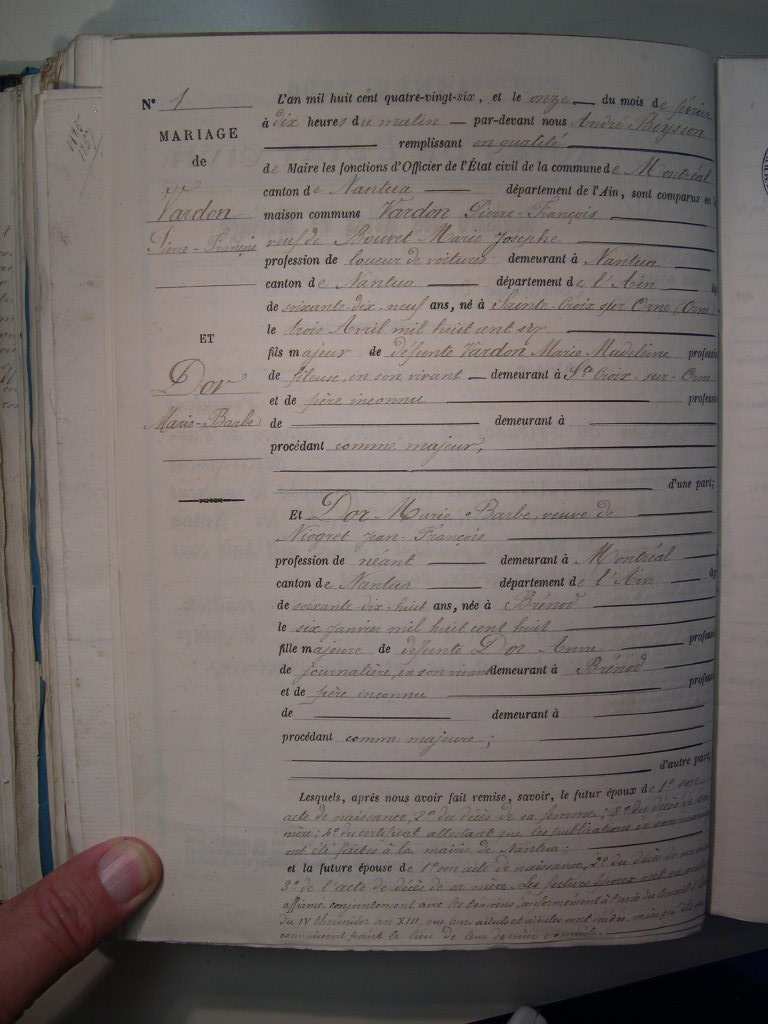 N° 1
MARIAGE
de
Vardon
Pierre-François
ET
Dor
Marie-Barbe
L'an mil huit cent quatre-vingt-six, et le onze du mois de février
à dix heures du matin par-devant nous André
remplissant en qualité
de Maire les fonctions d'Officier de l'État civil de la commune de Montréal
canton de Nantua département de l'Ain, sont comparus en
maison commune Vardon Pierre-François
veuf de Bouvet Marie Josephe
profession de loueur de voitures demeurant à Nantua
canton de Nantua département de l'Ain
de soixante-dix-neuf ans, né à Sainte-Croix sur Orne (Orne
le trois Avril mil huit cent six
fils majeur de défunte Vardon Marie Madeleine profession
de fileuse, en son vivant demeurant à Ste Croix-sur-Orne
et de père inconnu profession
de demeurant à
procédant comme majeur,
d'une part;
Et Dor Marie-Barbe, veuve de
Niogret Jean-François
profession de néant demeurant à Montréal
canton de Nantua département de l'Ain
de soixante dix huit ans, née à Brénod
le six janvier mil huit cent huit
fille majeure de défunte Dor Anne profession
de journalière, en son vivant demeurant à Brénod
et de père inconnu profession
de demeurant à
procédant comme majeure;
d'autre part,
Lesquels, après nous avoir fait remise, savoir, le futur époux de 1° son
acte de naissance, 2° du décès de sa femme; 3° du décès de sa
mère; 4° du certificat attestant que les publications
ont été faites à la mairie de Nantua;
et la future épouse de 1° son acte de naissance, 2° du décès de son mari
3° de l'acte de décès de sa mère. les futurs époux ont en outre
affirmé conjointement avec les témoins conformément à l'avis du Conseil d'État
du IV thermidor an XIII, que leurs aïeuls et aïeules sont
connaissent point le lieu de leur dernier domicile.